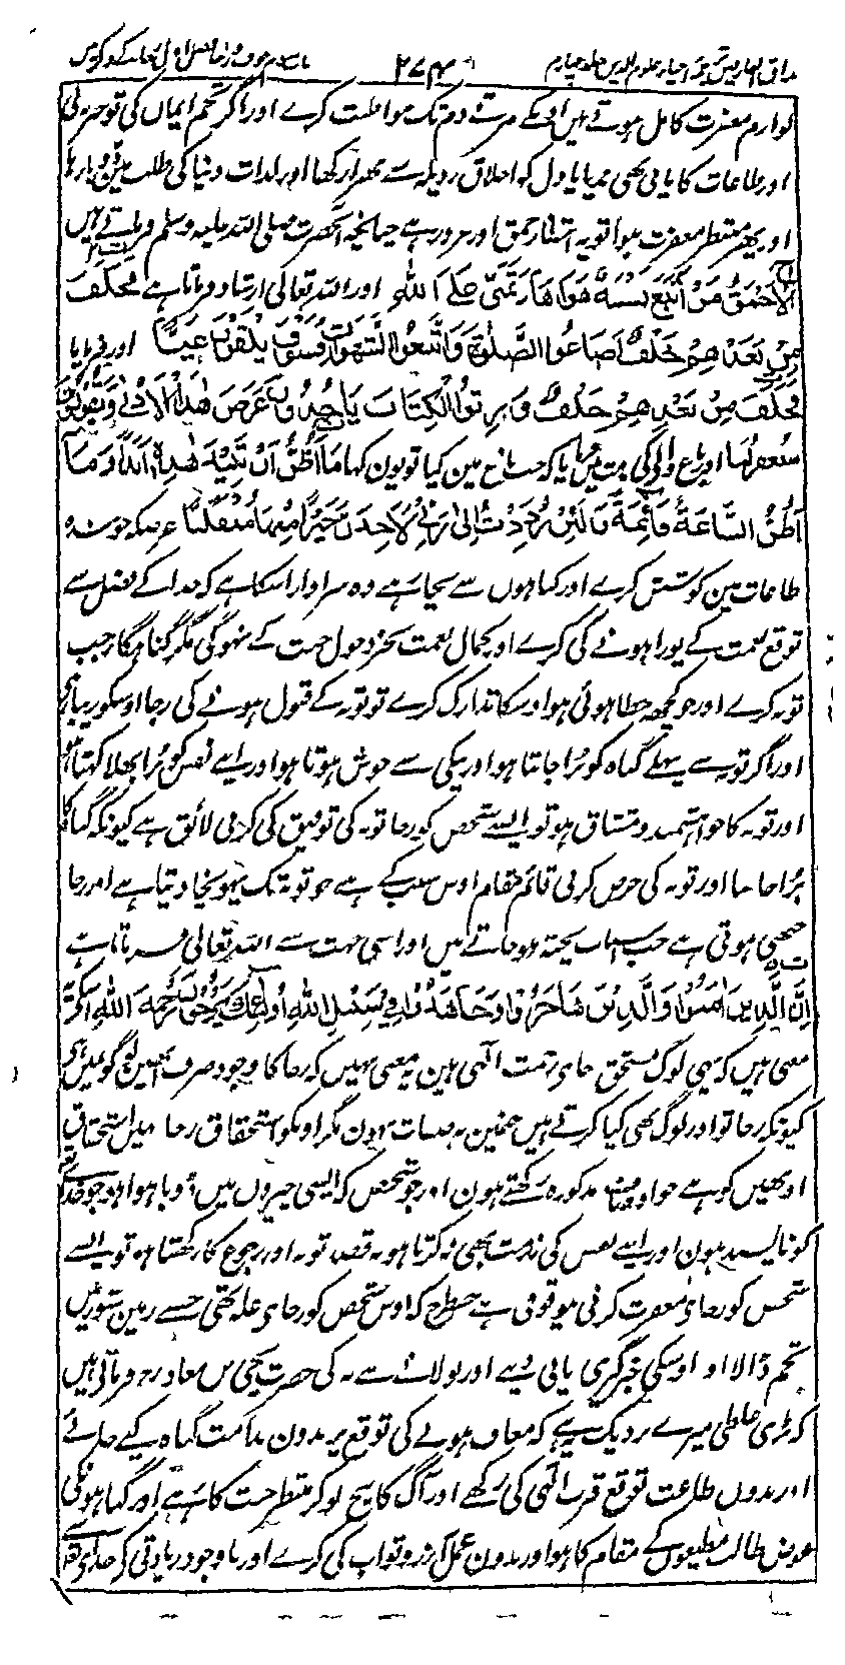 مذاق العارفین ترجمہ احیاء علوم الدین جلد چہارم ۲۷۴ باب سوم خوف و رجا فصل اول رجا کے ذکر میں
لوازم مغفرت کامل ہوتے ہیں اوسکے مرتے دم تک مواظبت کرے اور اگر تخم ایمان کی تو خبر نہ لی
اور طاعات کا پانی بھی ندیا یا دل کو اخلاق رذیلہ سے بھرا رکھا اور لذات دنیا کی طلب میں ڈوبا رہا
اور پھر منتظر مغفرت ہوا تو یہ انتظار حمق اور غرور ہے چنانچہ آنحضرت صلی اللہ علیہ وسلم فرماتے ہیں
الاَحْمَقُ مَنْ اَتْبَعَ نَفْسَهُ هَوَاهَا وَتَمَنّٰى عَلَى اللّٰهِ اور اللہ تعالی ارشاد فرماتا ہے فَخَلَفَ
مِنْ بَعْدِهِمْ خَلْفٌ اَضَاعُوا الصَّلٰوةَ وَاتَّبَعُوا الشَّهَوَاتِ فَسَوْفَ يَلْقَوْنَ غَيًّا اور فرمایا
فَخَلَفَ مِنْ بَعْدِهِمْ خَلْفٌ وَرِثُوا الْكِتَابَ يَاخُذُونَ عَرَضَ هٰذَا الْاَدْنٰى وَيَقُوْلُوْنَ
سَيُغْفَرُ لَنَا اور باغ والے کی مذمت میں فرمایا کہ جب باغ مین گیا تو یون کہا مَا اَظُنُّ اَنْ تَبِيْدَ هٰذِهٖ اَبَدًا وَمَا
اَظُنُّ السَّاعَةَ قَائِمَةً وَلَئِنْ رُدِدْتُ اِلٰى رَبِّيْ لَاَجِدَنَّ خَيْرًا مِنْهَا مُنْقَلَبًا غرضکہ جو بندہ
طاعات مین کوشش کرے اور گناہوں سے بچتا رہے وہ سزاوار اسکا ہے کہ خدا کے فضل سے
توقع نعمت کے پورا ہونے کی کرے اور کمال نعمت بجز دخول جنت کے نہوگی مگر گناہگار جب
توبہ کرے اور جو کچھ خطا ہوئی ہو اوسکا تدارک کرے تو توبہ کے قبول ہونے کی رجا اوسکو زیبا ہے
اور اگر توبہ سے پہلے گناہ کو برا جانتا ہو اور نیکی سے خوش ہوتا ہو اور اپنے نفس کو برا بھلا کہتا ہو
اور توبہ کا خواہشمند و مشتاق ہو تو ایسے شخص کو رجا توبہ کی توفیق کی کرنی لائق ہے کیونکہ گناہ کا
برا جاننا اور توبہ کی حرص کرنی قائم مقام اوس سبب کے ہے جو توبہ تک پہونچا دیتا ہے اور رجا
جبھی ہوتی ہے جب اسباب پختہ ہو جاتے ہیں اور اسی جہت سے اللہ تعالی فرماتا ہے
اِنَّ الَّذِيْنَ اٰمَنُوْا وَالَّذِيْنَ هَاجَرُوْا وَجَاهَدُوْا فِيْ سَبِيْلِ اللّٰهِ اُولٰئِكَ يَرْجُوْنَ رَحْمَةَ اللّٰهِ اسکے
معنی ہیں کہ یہی لوگ مستحق رجائے رحمت الٰہی ہین یہ معنی نہیں کہ رجا کا وجود صرف انہین لوگو میں ہے
کیونکہ رجا تو اور لوگ بھی کیا کرتے ہیں جنمین یہ صفات نہون مگر اونکو استحقاق رجا میں استحقاق
اونھیں کو ہے جو اوصاف مذکورہ رکھتے ہون اور جو شخص کہ ایسی چیزوں میں ڈوبا ہوا ہو جو خدا
کو ناپسند ہون اور اپنے نفس کی مذمت بھی نہ کرتا ہو نہ قصد توبہ اور رجوع کا رکھتا ہو تو ایسے
شخص کو رجاے مغفرت کرنی موقوفی ہے جسطرح کہ اوس شخص کو رجاے غلہ تھی جسنے زمین شور میں
تخم ڈالا اور اوسکی خبرگیری پانی دینے اور نولانے سے نہ کی حضرت یحیی بن معاذ رح فرماتے ہیں
کہ بڑی غلطی میرے نزدیک یہ ہے کہ معاف ہونے کی توقع پر بدون ندامت گناہ کیے جائے
اور بدون طاعت توقع قرب الٰہی کی رکھے اور آگ کا بیج بو کر منتظر جنت کا رہے اور گناہونکے
عوض طالب مطیعوں کے مقام کا ہو اور بدون عمل آرزو ثواب کی کرے اور باوجود زیادتی کے خدا سے